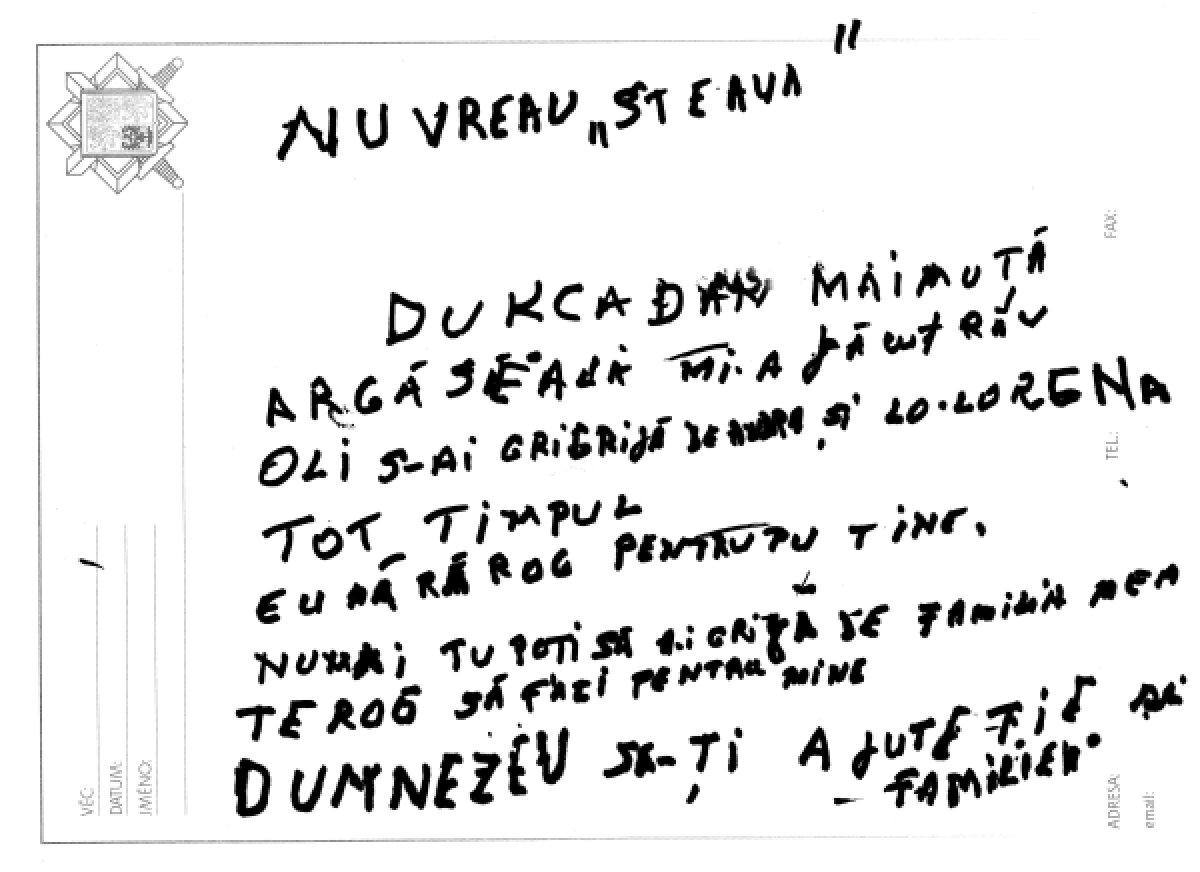 NU VREAU „STEAUA"
DUKCADAN MAIMUȚĂ
ARGĂSEALK MI-A FĂCUT RĂU
OLI S-AI GRIGRIJĂ DE ȘI LO-LORENA
TOT TIMPUL
EU MĂ RĂ ROG PENTRUTU TINE.
NUMAI TU POTI SĂ AI GRIJĂ DE FAMILIA MEA
TE ROG SĂ FACI PENTRU MINE
DUMNEZEU SĂ-ȚI AJUTE ȚIE
FAMILIEI
VĚC:
DATUM:
JMÉNO:
FAX:
TEL.:
ADRESA:
email: